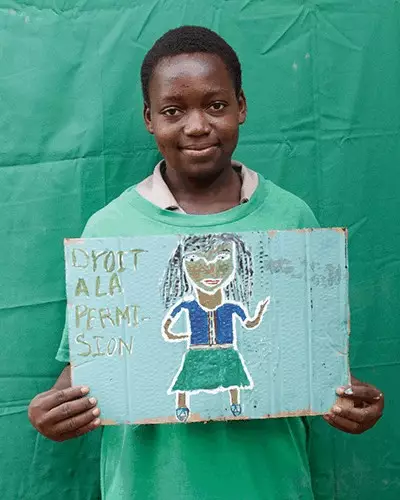 DroIT
A LA
PERMI-
SION